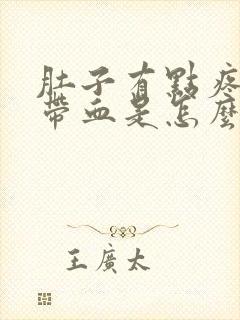 肚子有點疼
帶血是怎麼
王廣太